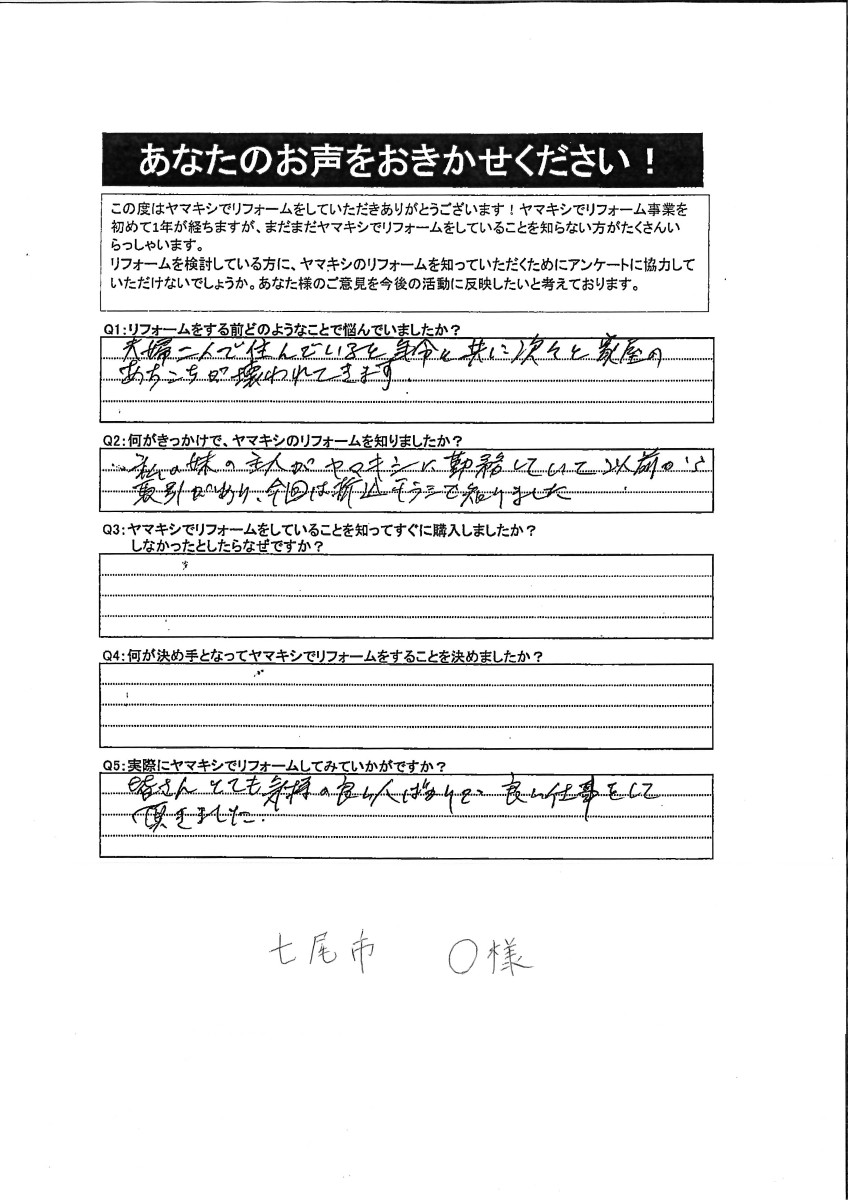 あなたのお声をおきかせください！
この度はヤマキシでリフォームをしていただきありがとうございます！ヤマキシでリフォーム事業を
初めて1年が経ちますが、まだまだヤマキシでリフォームをしていることを知らない方がたくさんい
らっしゃいます。
リフォームを検討している方に、ヤマキシのリフォームを知っていただくためにアンケートに協力して
いただけないでしょうか。あなた様のご意見を今後の活動に反映したいと考えております。
Q1:リフォームをする前どのようなことで悩んでいましたか？
夫婦二人で住んでいると年令と共に次々と家屋の
あちこちが壊われてきます.
Q2:何がきっかけで、ヤマキシのリフォームを知りましたか？
私の妹の主人がヤマキシに勤務していて以前から
取引があり、今回は折込チラシで知りました
Q3:ヤマキシでリフォームをしていることを知ってすぐに購入しましたか？
しなかったとしたらなぜですか？
Q4:何が決め手となってヤマキシでリフォームをすることを決めましたか？
Q5:実際にヤマキシでリフォームしてみていかがですか？
皆さんとても気持の良い人ばかりで良い仕事をして
頂きました.
七尾市 〇様